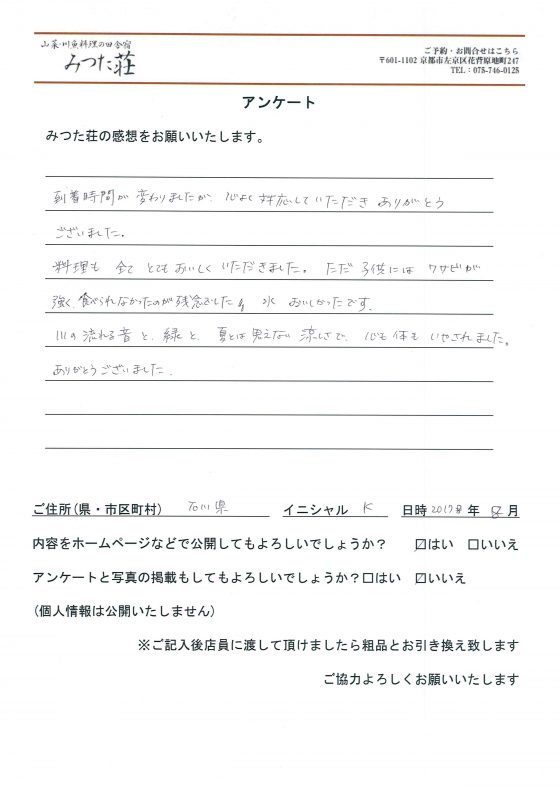 山菜・川魚料理の田舎宿
みつた荘
ご予約・お問合せはこちら
〒601-1102 京都市左京区花脊原地町247
TEL：075-746-0125
アンケート
みつた荘の感想をお願いいたします。
到着時間が 変わりましたが、心よく 対応して いただき ありがとう
ございました。
料理も 全て とても おいしく いただきました。 ただ 子供には ワサビが
強く、食べられなかったのが残念でした 水 おいしかったです。
川の 流れる 音 と、緑 と、夏とは 思えない 涼しさで、心も 体も いやされました。
ありがとうございました。
ご住所(県・市区町村) 石川県 イニシャル K 日時 2017 年 8 月
内容をホームページなどで公開してもよろしいでしょうか？ ☑はい □いいえ
アンケートと写真の掲載もしてもよろしいでしょうか？□はい ☑いいえ
(個人情報は公開いたしません)
※ご記入後店員に渡して頂けましたら粗品とお引き換え致します
ご協力よろしくお願いいたします